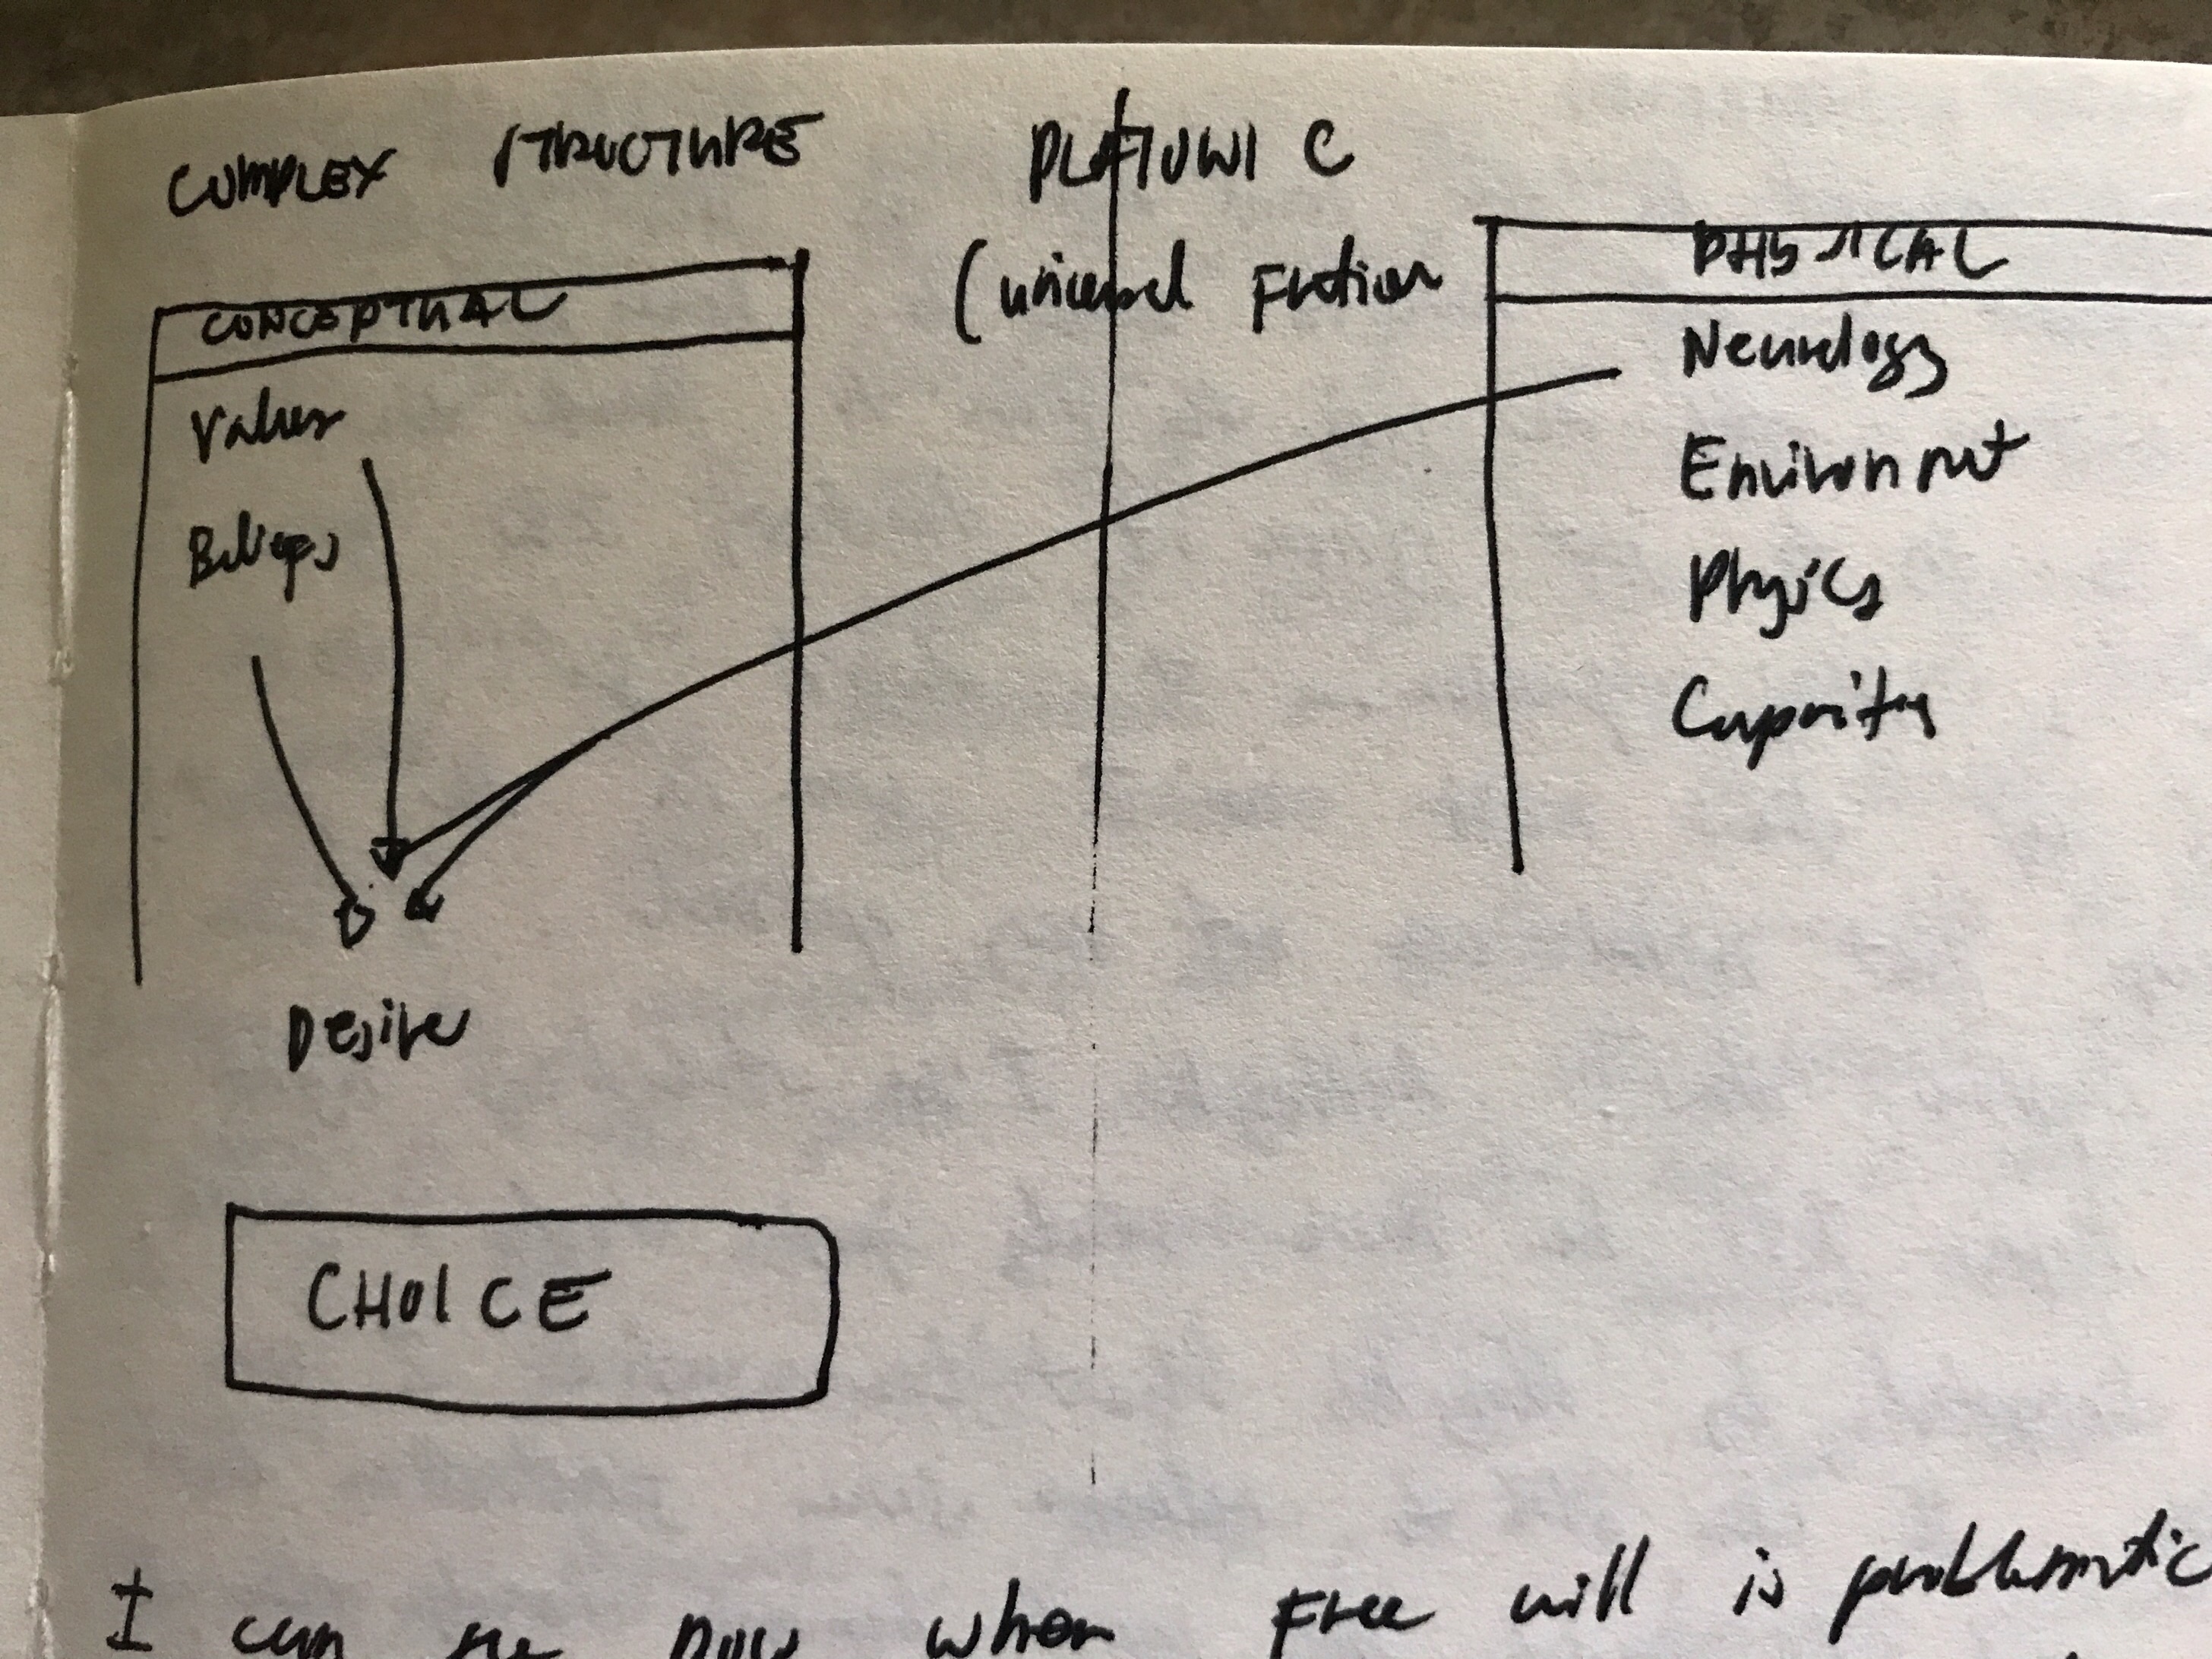 COMPLEX STRUCTURE PLATONIC
(universal Fiction
CONCEPTUAL
Values
Beliefs
PHYSICAL
Neurology
Environment
Physics
Capacity
Desire
CHOICE
I can see now when Free will is problematic